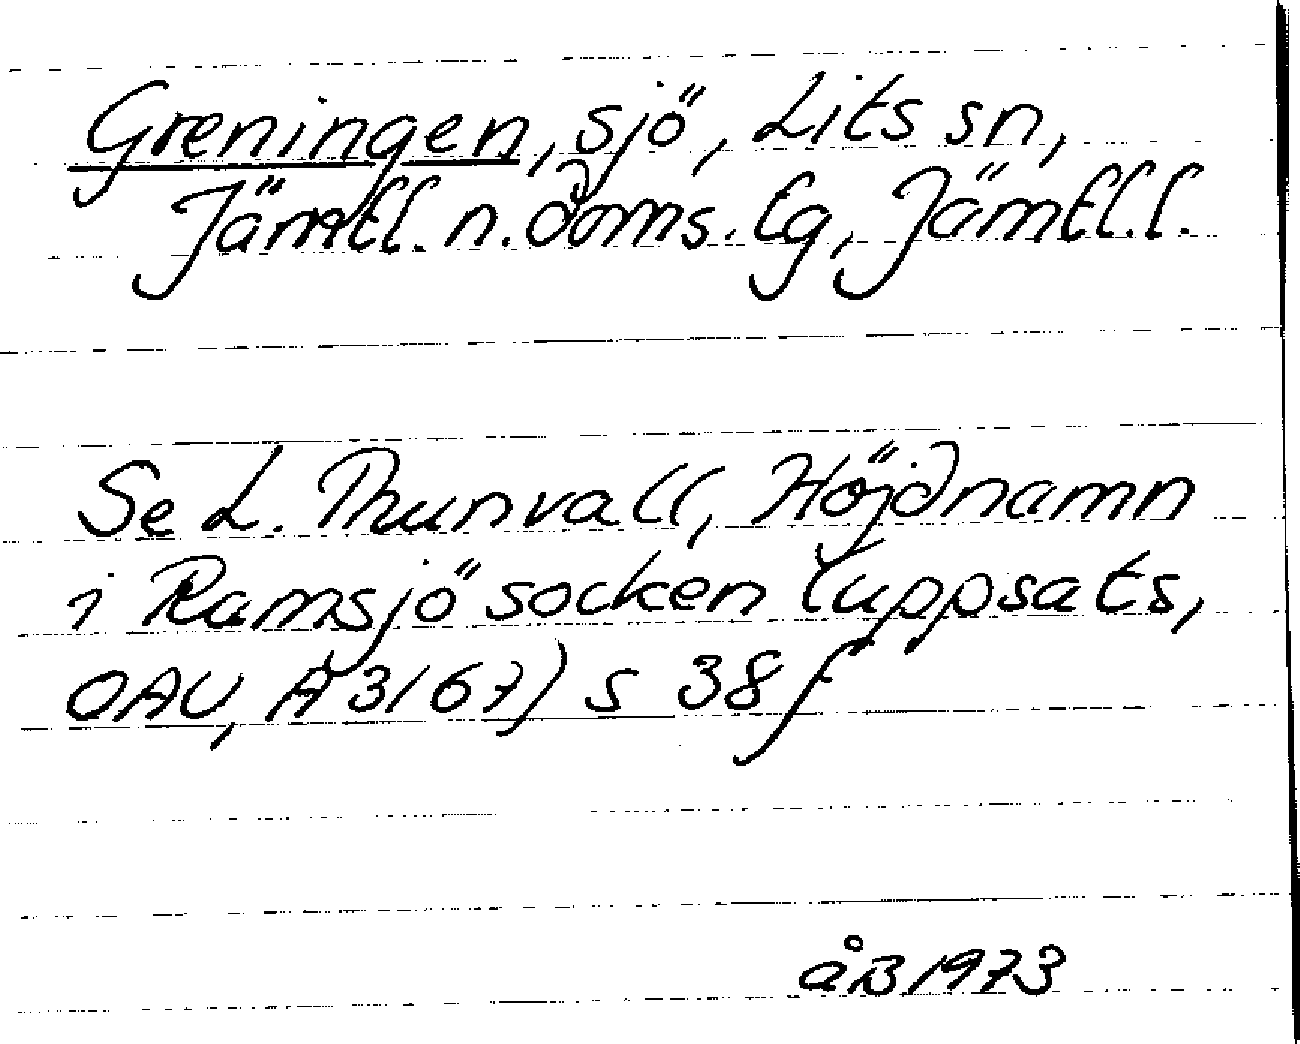 Greningen, sjö, Lits sn,
Jämtl. n. doms. tg, Jämtl. l.
Se L. Thunvall, Höjdnamn
i Ramsjö socken (uppsats,
OAU, A 3167) s 38 f
åB 1973